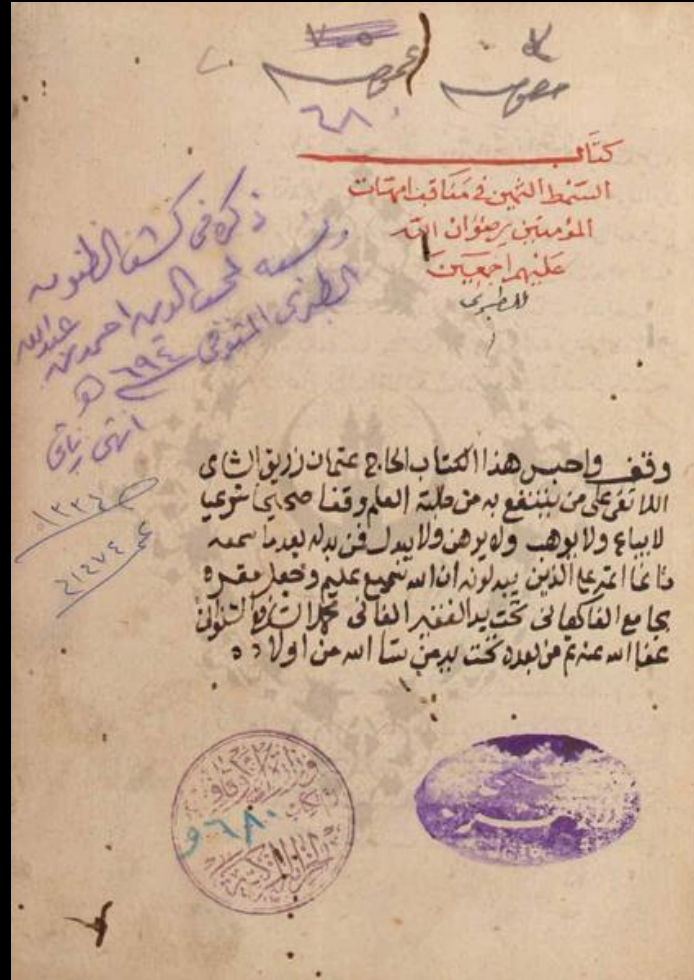 ٧٠٥
خصوص
عموم
٦٨٠
كتاب
السمط الثمين في مناقب امهات
المؤمنين رضوان الله
عليهم اجمعين
للطبري
ذكره في كشف الظنون
ونسبه لمحب الدين احمد بن
عبدالله
الطبري المتوفى
٦٩٤ هـ
انتهى
١٣٣٤
٤١٤٧٤
وقف واحبس هذا الكتاب الحاج عثمان زريق الشامي
اللاتقى على من ينتفع به من طلبة العلم وقفا صحيحا شرعيا
لا يباع ولا يوهب ولا يرهن ولا يبدل فمن بدله بعدما سمعه
فانما اثمه على الذين يبدلونه ان الله سميع عليم وجعل مقره
بجامع الفاكهاني تحت يد الفقير الفاني محمد الشنواني
عفا الله عنه ثم من بعده تحت يد من شا الله من اولاده
وزارة الاوقاف
٦٨٠